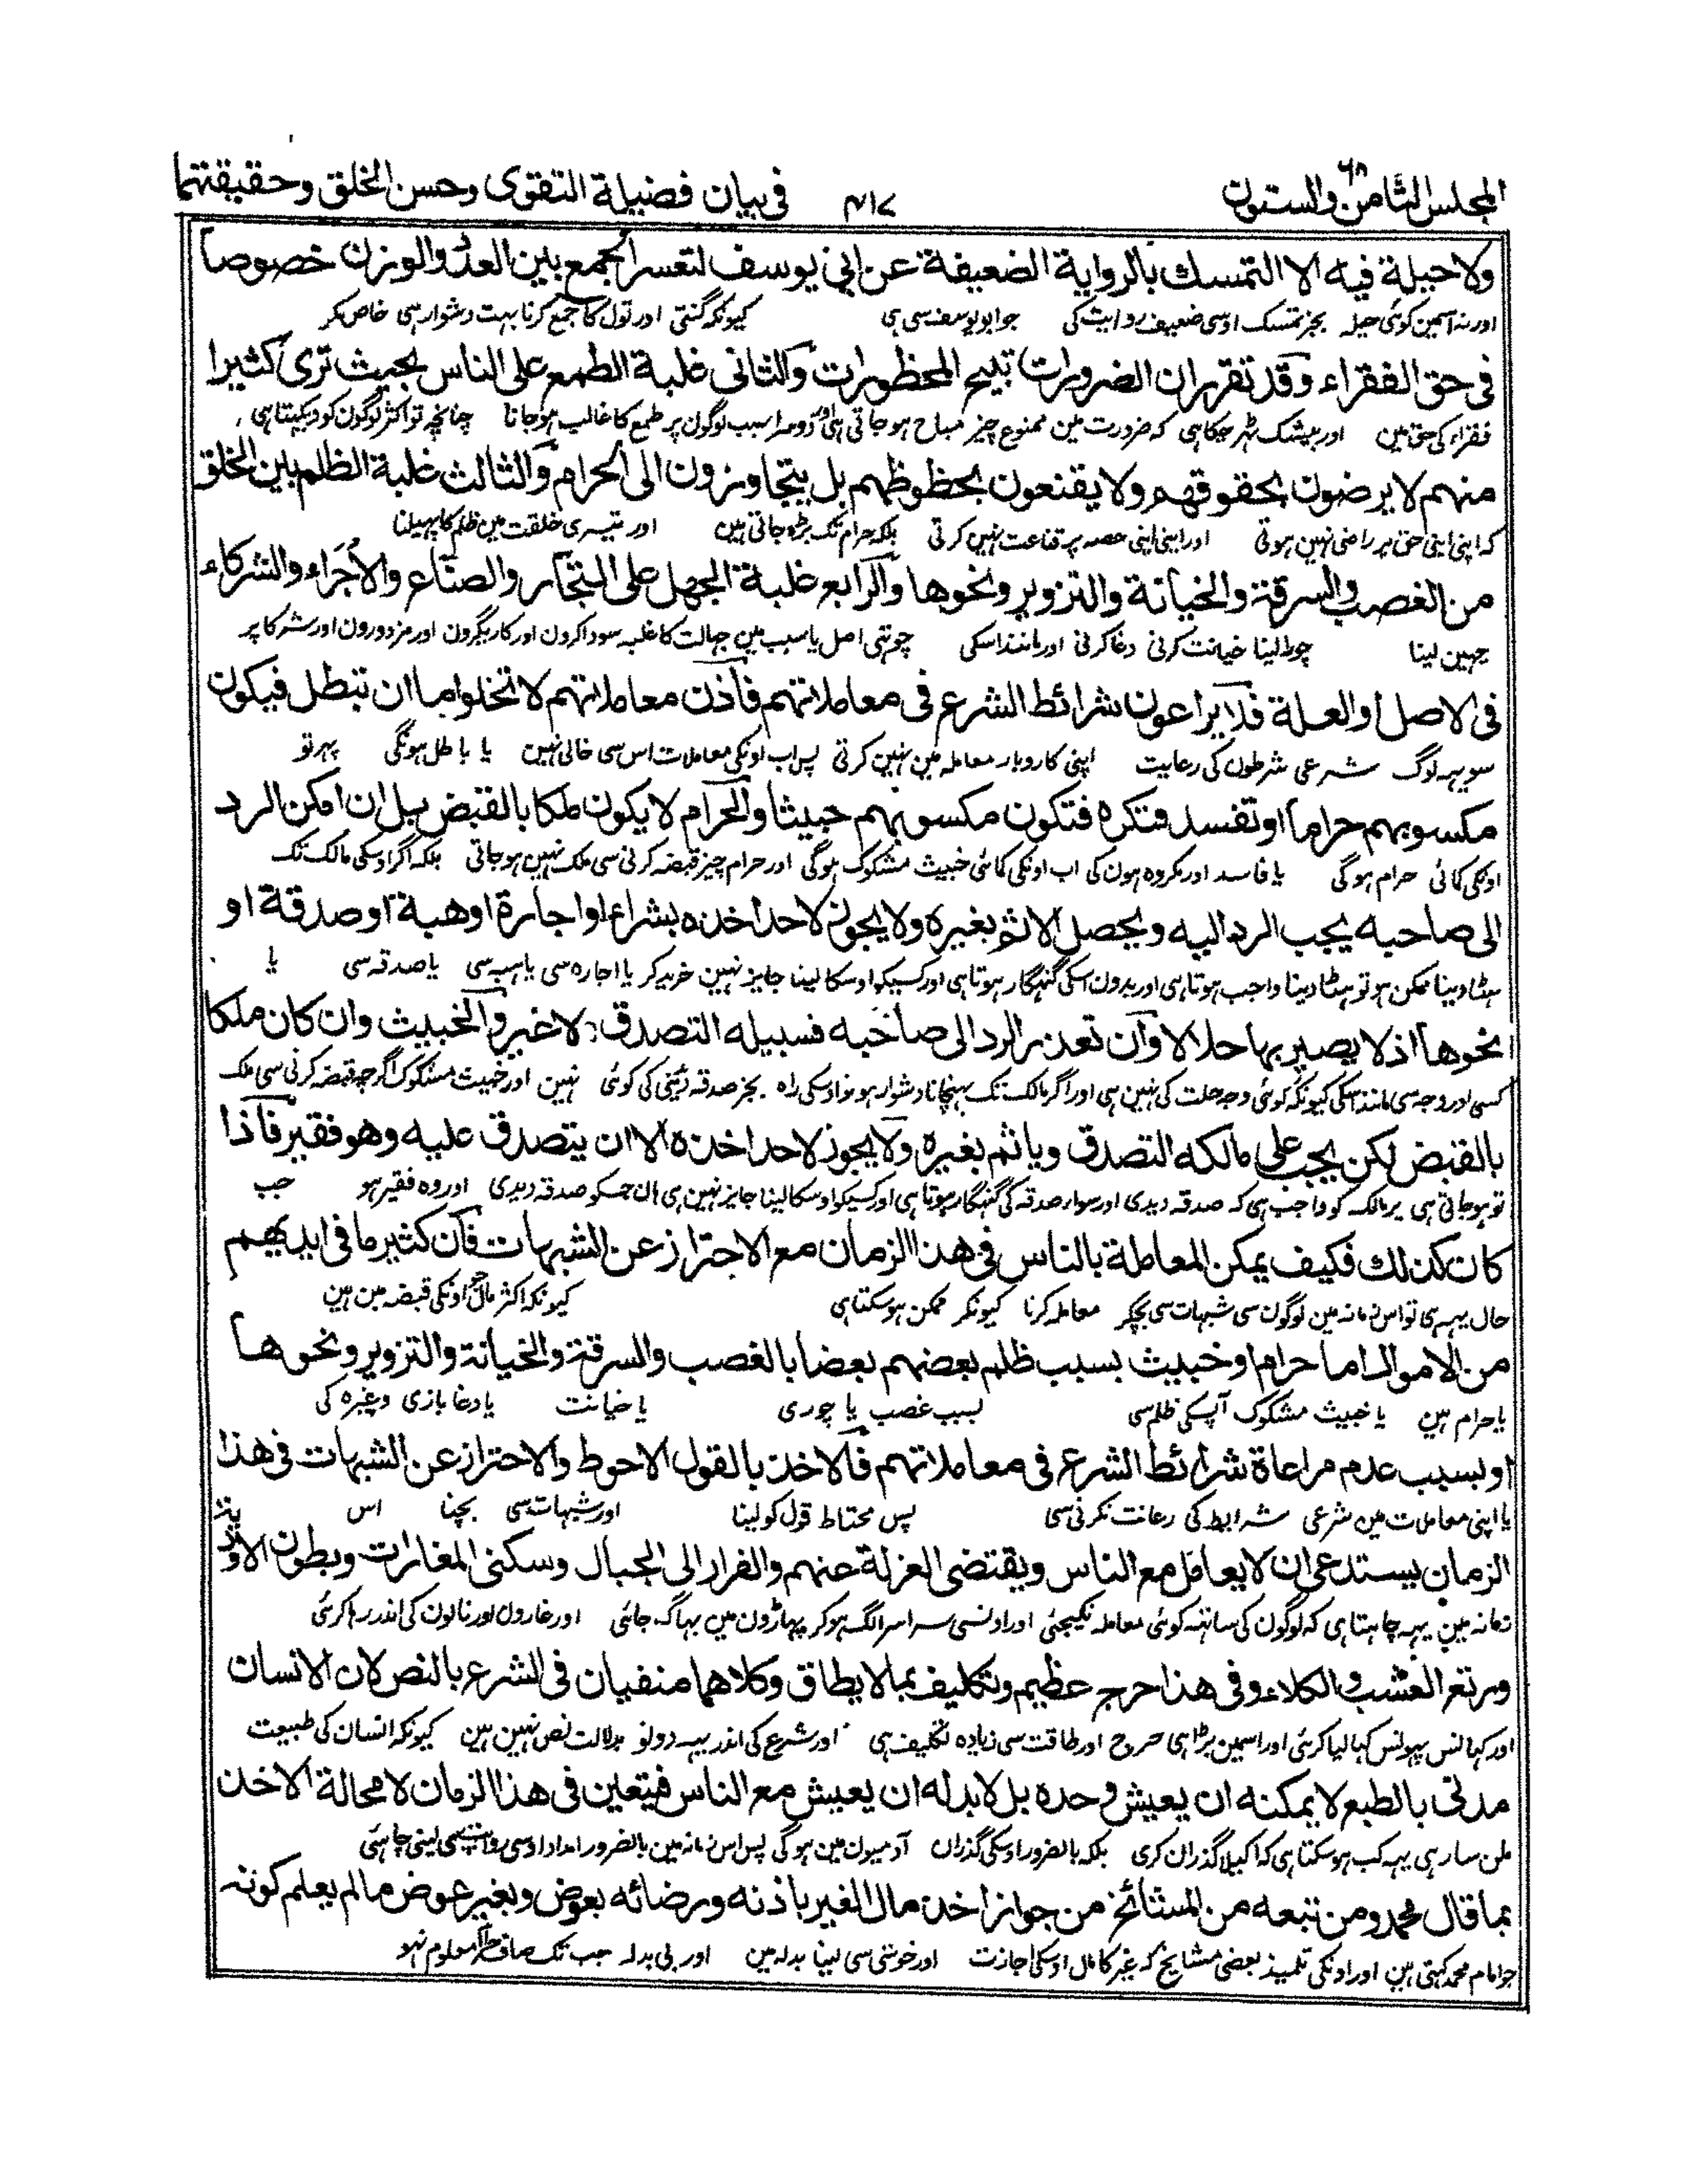 المجلس الثامن والستون ٦٨
٤١٧
فى بيان فضيلة التقوى وحسن الخلق وحقيقتهما
ولا حيلة فيه الا التمسك بالرواية الضعيفة عن ابي يوسف لتعسر الجمع بين العدّ والوزن خصوصا
اور نہ اسمین کوئی حیلہ بجز تمسک اوسی ضعیف روایت کی جو ابو یوسف سی ہی کیونکہ گنتی اور تول کا جمع کرنا بہت دشوار ہی خاص کر
فى حق الفقراء وقد تقرر ان الضرورات تبيح المحظورات والثانى غلبة الطمع على الناس بحيث ترى كثيرا
فقراء کی حق مین اور بیشک ٹہر چکا ہی کہ ضرورت مین ممنوع چیز مباح ہو جاتی ہی اور دوسرا سبب لوگون پر طمع کا غالب ہو جانا چنانچہ تو اکثر لوگون کو دیکہتا ہی
منهم لا يرضون بحقوقهم ولا يقنعون بحظوظهم بل يتجاوزون الى الحرام والثالث غلبة الظلم بين الخلق
کہ اپنی اپنی حق پر راضی نہین ہوتی اور اپنی اپنی حصہ پر قناعت نہین کرتی بلکہ حرام تک بڑہ جاتی ہین اور تیسری خلقت مین ظلم کا پہیلنا
من الغصب والسرقة والخيانة والتزوير ونحوها والرابع غلبة الجهل على التجار والصناع والأجراء والشركاء
چہین لینا چورا لینا خیانت کرنی دغا کرنی اور مانند اسکی چوتہی اصل یا سبب مین جہالت کا غلبہ سوداگرون اور کاریگرون اور مزدورون اور شرکا پر
فى الاصل او العلة فلا يراعون شرائط الشرع فى معاملاتهم فاذن معاملاتهم لا تخلو اما ان تبطل فيكون
سو یہہ لوگ شرعی شرطون کی رعایت اپنی کاروبار معاملہ مین نہین کرتی پس اب اونکی معاملات اس سی خالی نہین یا باطل ہونگی پہر تو
مكسوبهم حراما او تفسد فتكره فتكون مكسوبهم خبيثا والحرام لا يكون ملكا بالقبض بل ان امكن الرد
اونکی کمائی حرام ہوگی یا فاسد اور مکروہ ہون کی اب اونکی کمائی خبیث مشکوک ہوگی اور حرام چیز قبضہ کرنی سی ملک نہین ہو جاتی بلکہ اگر اوسکی مالک تک
الى صاحبه يجب الرد اليه ويحصل الاثم بغيره ولا يجوز لاحد اخذه بشراء او اجارة او هبة او صدقة او
ہٹا دینا ممکن ہو تو ہٹا دینا واجب ہوتا ہی اور بدون اسکی گنہگار ہوتا ہی اور کسیکو اوسکا لینا جایز نہین خرید کر یا اجارہ سی یا ہبہ سی یا صدقہ سی یا
نحوها اذ لا يصير بها حلالا وان تعذر الرد الى صاحبه فسبيله التصدق لا غير والخبيث وان كان ملكا
کسی اور وجہ سی مانند اسکی کیونکہ کوئی وجہ حلت کی نہین ہی اور اگر مالک تک پہنچانا دشوار ہو تو اوسکی راہ بجز صدقہ دینی کی کوئی نہین اور خبیث مشکوک اگرچہ قبضہ کرنی سی ملک
بالقبض لكن يجب على مالكه التصدق وياثم بغيره ولا يجوز لاحد اخذه الا ان يتصدق عليه وهو فقير فاذا
تو ہو جاتی ہی پر مالک کو واجب ہی کہ صدقہ دیدی اور سواء صدقہ کی گنہگار ہوتا ہی اور کسیکو اوسکا لینا جایز نہین ہی ہان جسکو صدقہ دیدی اور وہ فقیر ہو جب
كان كذلك فكيف يمكن المعاملة بالناس فى هذا الزمان مع الاحتراز عن الشبهات فان كثير ما فى ايديهم
حال یہہ ہی تو اس زمانہ مین لوگون سی شبہات سی بچکر معاملہ کرنا کیونکر ممکن ہو سکتا ہی کیونکہ اکثر مال جو اونکی قبضہ مین ہین
من الاموال اما حرام او خبيث بسبب ظلم بعضهم بعضا بالغصب والسرقة والخيانة والتزوير ونحوها
یا حرام ہین یا خبیث مشکوک آپسکی ظلم سی بسبب غصب یا چوری یا خیانت یا دغا بازی وغیرہ کی
او بسبب عدم مراعاة شرائط الشرع فى معاملاتهم فالاخذ بالقول الاحوط والاحتراز عن الشبهات فى هذا
یا اپنی معاملات مین شرعی شرایط کی رعائت نکرنی سی پس محتاط قول کو لینا اور شبہات سی بچنا اس
الزمان يستدعى ان لا يعامل مع الناس ويقتضى العزلة عنهم والفرار الى الجبال وسكنى المغارات وبطون الاودية
زمانہ مین یہہ چاہتا ہی کہ لوگون کی ساتہہ کوئی معاملہ نکیجئی اور اونسی سراسر الگ ہو کر پہاڑون مین بہاگ جائی اور غارون اور نالون کی اندر رہا کرئی
ورتع العشب والكلاء وفى هذا حرج عظيم وتكليف بما لا يطاق وكلاهما منفيان فى الشرع بالنص لان الانسان
اور گہانس پہونس کہا لیا کرئی اور اسمین بڑا ہی حرج اور طاقت سی زیادہ تکلیف ہی اور شرع کی اندر یہہ دونو بدلالت نص نہین ہین کیونکہ انسان کی طبیعت
مدنى بالطبع لا يمكنه ان يعيش وحده بل لا بد له ان يعيش مع الناس فيتعين فى هذا الزمان لا محالة الاخذ
ملن سار ہی یہہ کب ہو سکتا ہی کہ اکیلا گذران کری بلکہ بالضرور اوسکی گذران آدمیون مین ہوگی پس اس زمانہ مین بالضرور امداد اوسی روایت سی لینی چاہئی
بما قال محمد ومن تبعه من المشائخ من جواز اخذ مال الغير باذنه ورضائه بعوض وبغير عوض ما لم يعلم كونه
جو امام محمد کہتی ہین اور اونکی تلمیذ بعضی مشایخ کہ غیر کا مال اوسکی اجازت اور خوشی سی لینا بدلہ مین اور بی بدلہ جب تک صاف حرام معلوم نہو